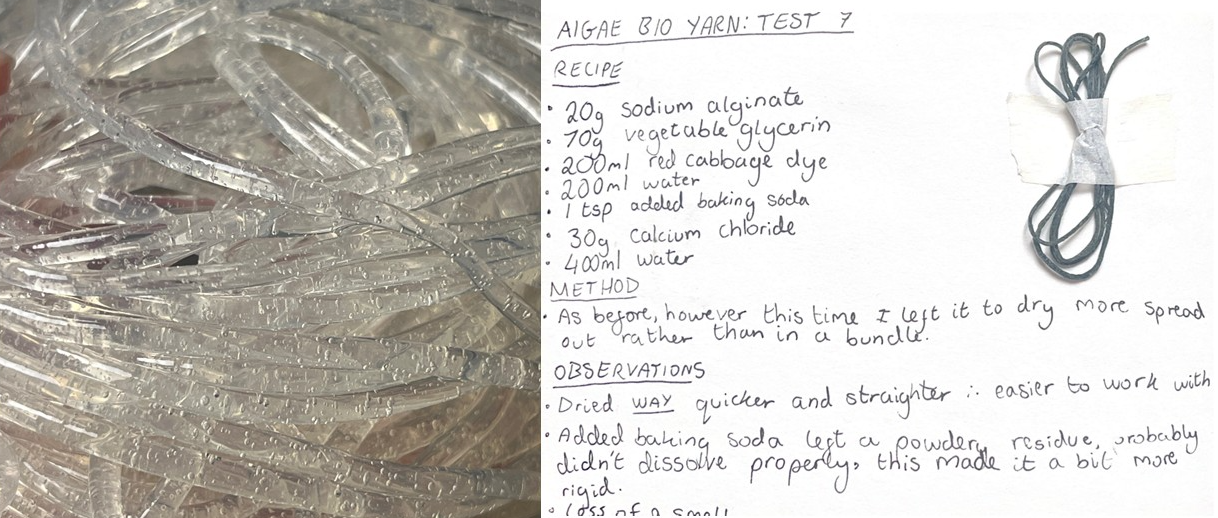 AlGAE BIO YARN: TEST 7
RECIPE
• 20g sodium alginate
• 70g vegetable glycerin
• 200ml red cabbage dye
• 200ml water
• 1 tsp added baking soda
• 30g calcium chloride
• 400ml water
METHOD
• As before, however this time I left it to dry more spread
out rather than in a bundle.
OBSERVATIONS
• Dried WAY quicker and straighter ∴ easier to work with
• Added baking soda left a powdery residue, probably
didn't dissolve properly, this made it a bit more
rigid.
• Loss of a small